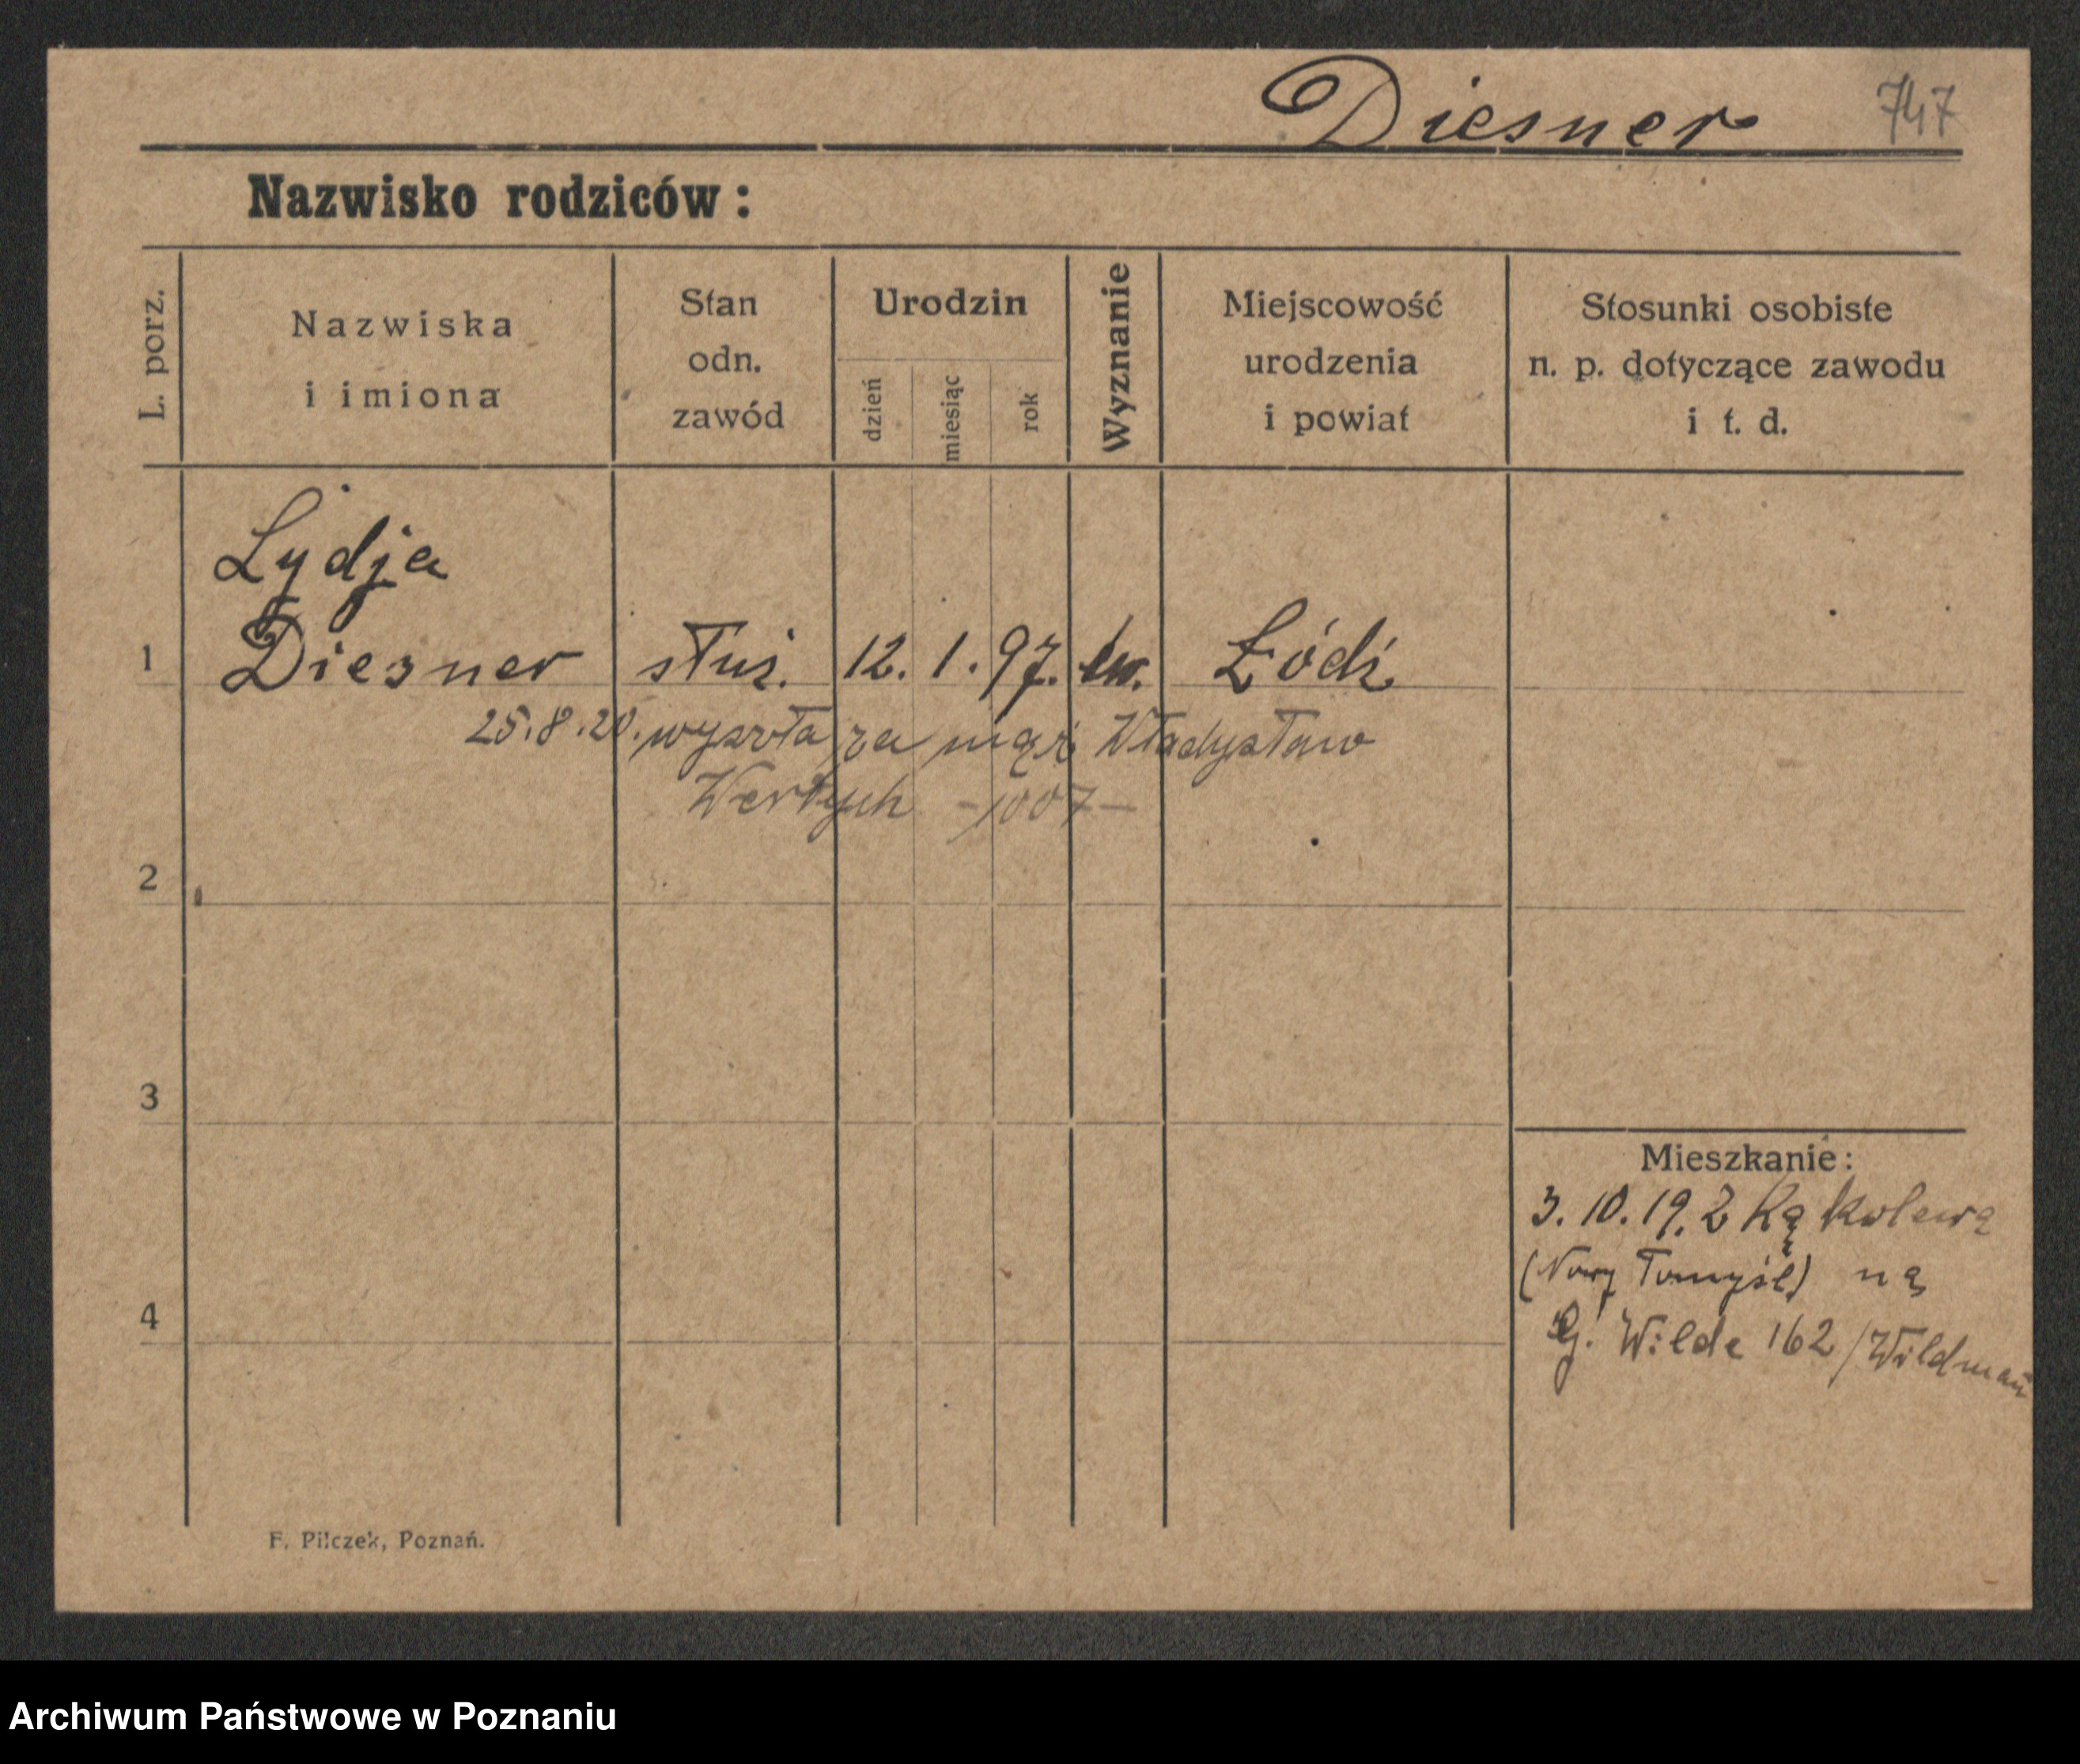 Diesner 747
Nazwisko rodziców:
L. porz.
Nazwiska
i imiona
Stan
odn.
zawód
Urodzin
dzień
miesiąc
rok
Wyznanie
Miejscowość
urodzenia
i powiat
Stosunki osobiste
n. p. dotyczące zawodu
i t. d.
Lydja
1 Diesner służ. 12. 1. 97. ew. Łódź
25.8.20. wyszła za mąż Władysław
-1007-
2
3
Mieszkanie:
3. 10. 19. Z Kąkolewa
(Nowy Tomyśl) na
4
G. Wilde 162 /Wildmań
F. Pilczek, Poznań.
Archiwum Państwowe w Poznaniu